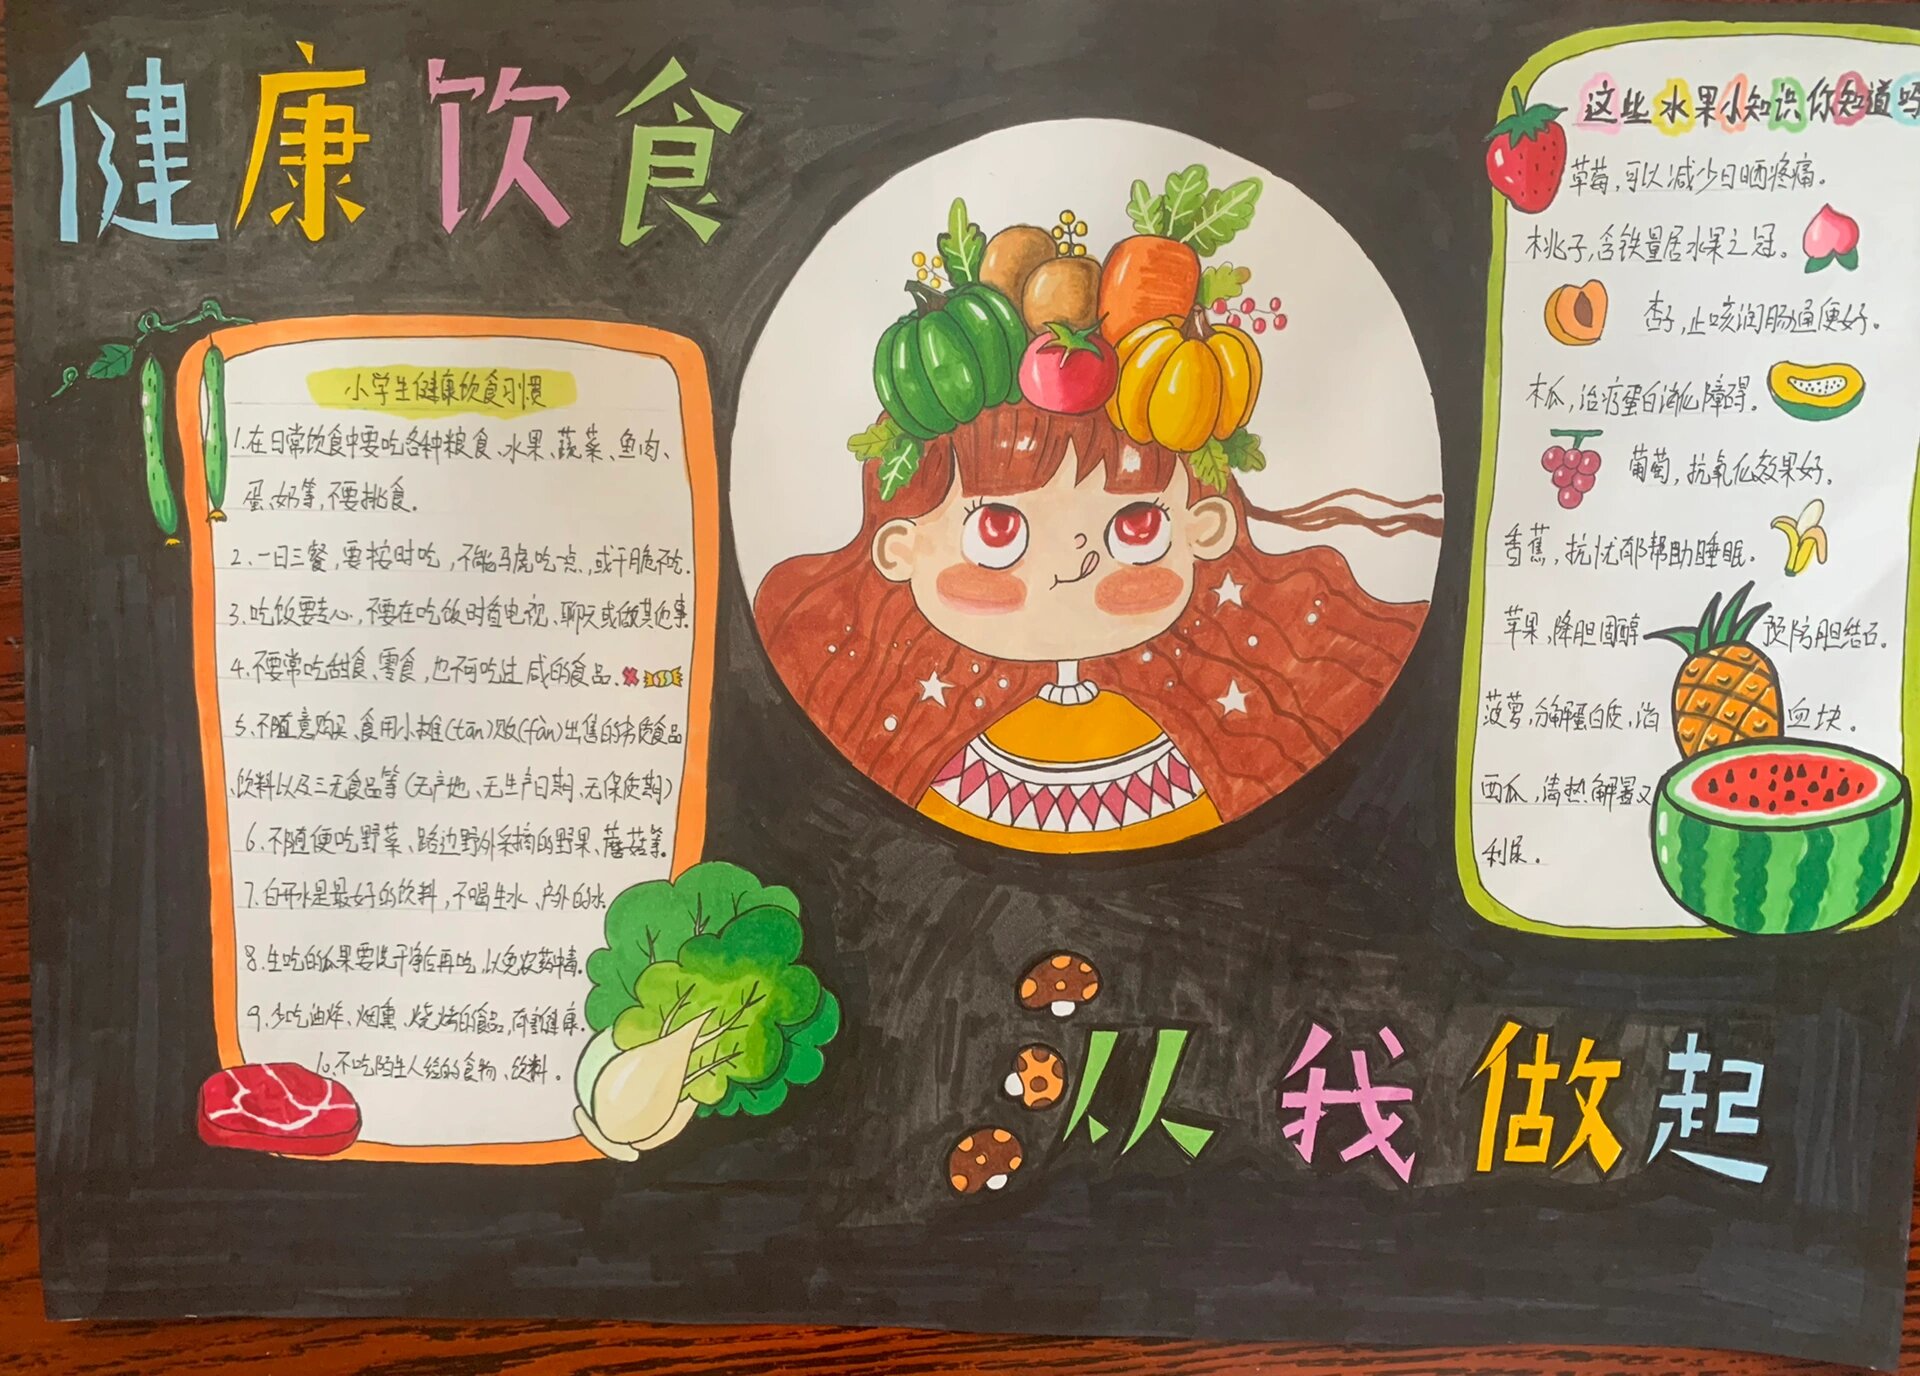 健康饮食
小学生健康饮食习惯
1.在日常饮食中要吃各种粮食、水果、蔬菜、鱼肉、
蛋、奶等,不要挑食。
2.一日三餐,要按时吃,不能马虎吃一点,或干脆不吃.
3.吃饭要专心,不要在吃饭时看电视、聊天或做其他事.
4.不要常吃甜食、零食,也不可吃过咸的食品.
5.不随意购买、食用小摊(tān)贩(fàn)出售的劣质食品
、饮料以及三无食品等(无产地、无生产日期、无保质期)
6.不随便吃野菜、路边野外采摘的野果、蘑菇等.
7.白开水是最好的饮料,不喝生水、户外的水.
8.生吃的瓜果要洗干净后再吃,以免农药中毒.
9.少吃油炸、烟熏、烧烤的食品,有害健康.
10.不吃陌生人给的食物、饮料.
这些水果小知识你知道吗
草莓,可以减少日晒疼痛。
桃子,含铁量居水果之冠。
杏子,止咳润肠通便好。
木瓜,治疗蛋白消化障碍。
葡萄,抗氧化效果好。
香蕉,抗忧郁帮助睡眠。
苹果,降胆固醇 预防胆结石。
菠萝,分解蛋白质,消 血块。
西瓜,清热解暑又
利尿。
从我做起